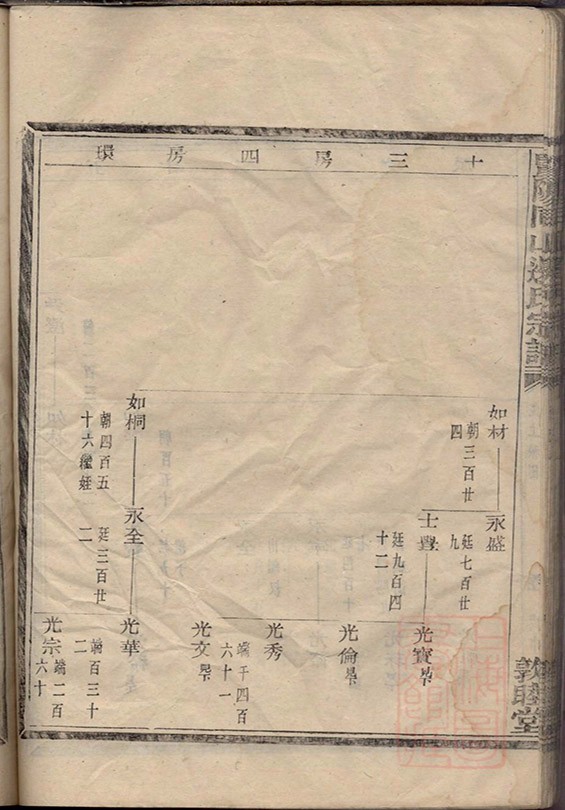 十三房四房環
如材
朝三百廿
四
永盛
廷七百廿
九
士
廷九百四
十二
光寶
光倫
光秀
端千四百
六十一
光文
如桐
朝四百五
十六
永全
廷三百廿
二
光華
端百三十
二
光宗
端二百
六十
山邊氏宗譜
敦睦堂